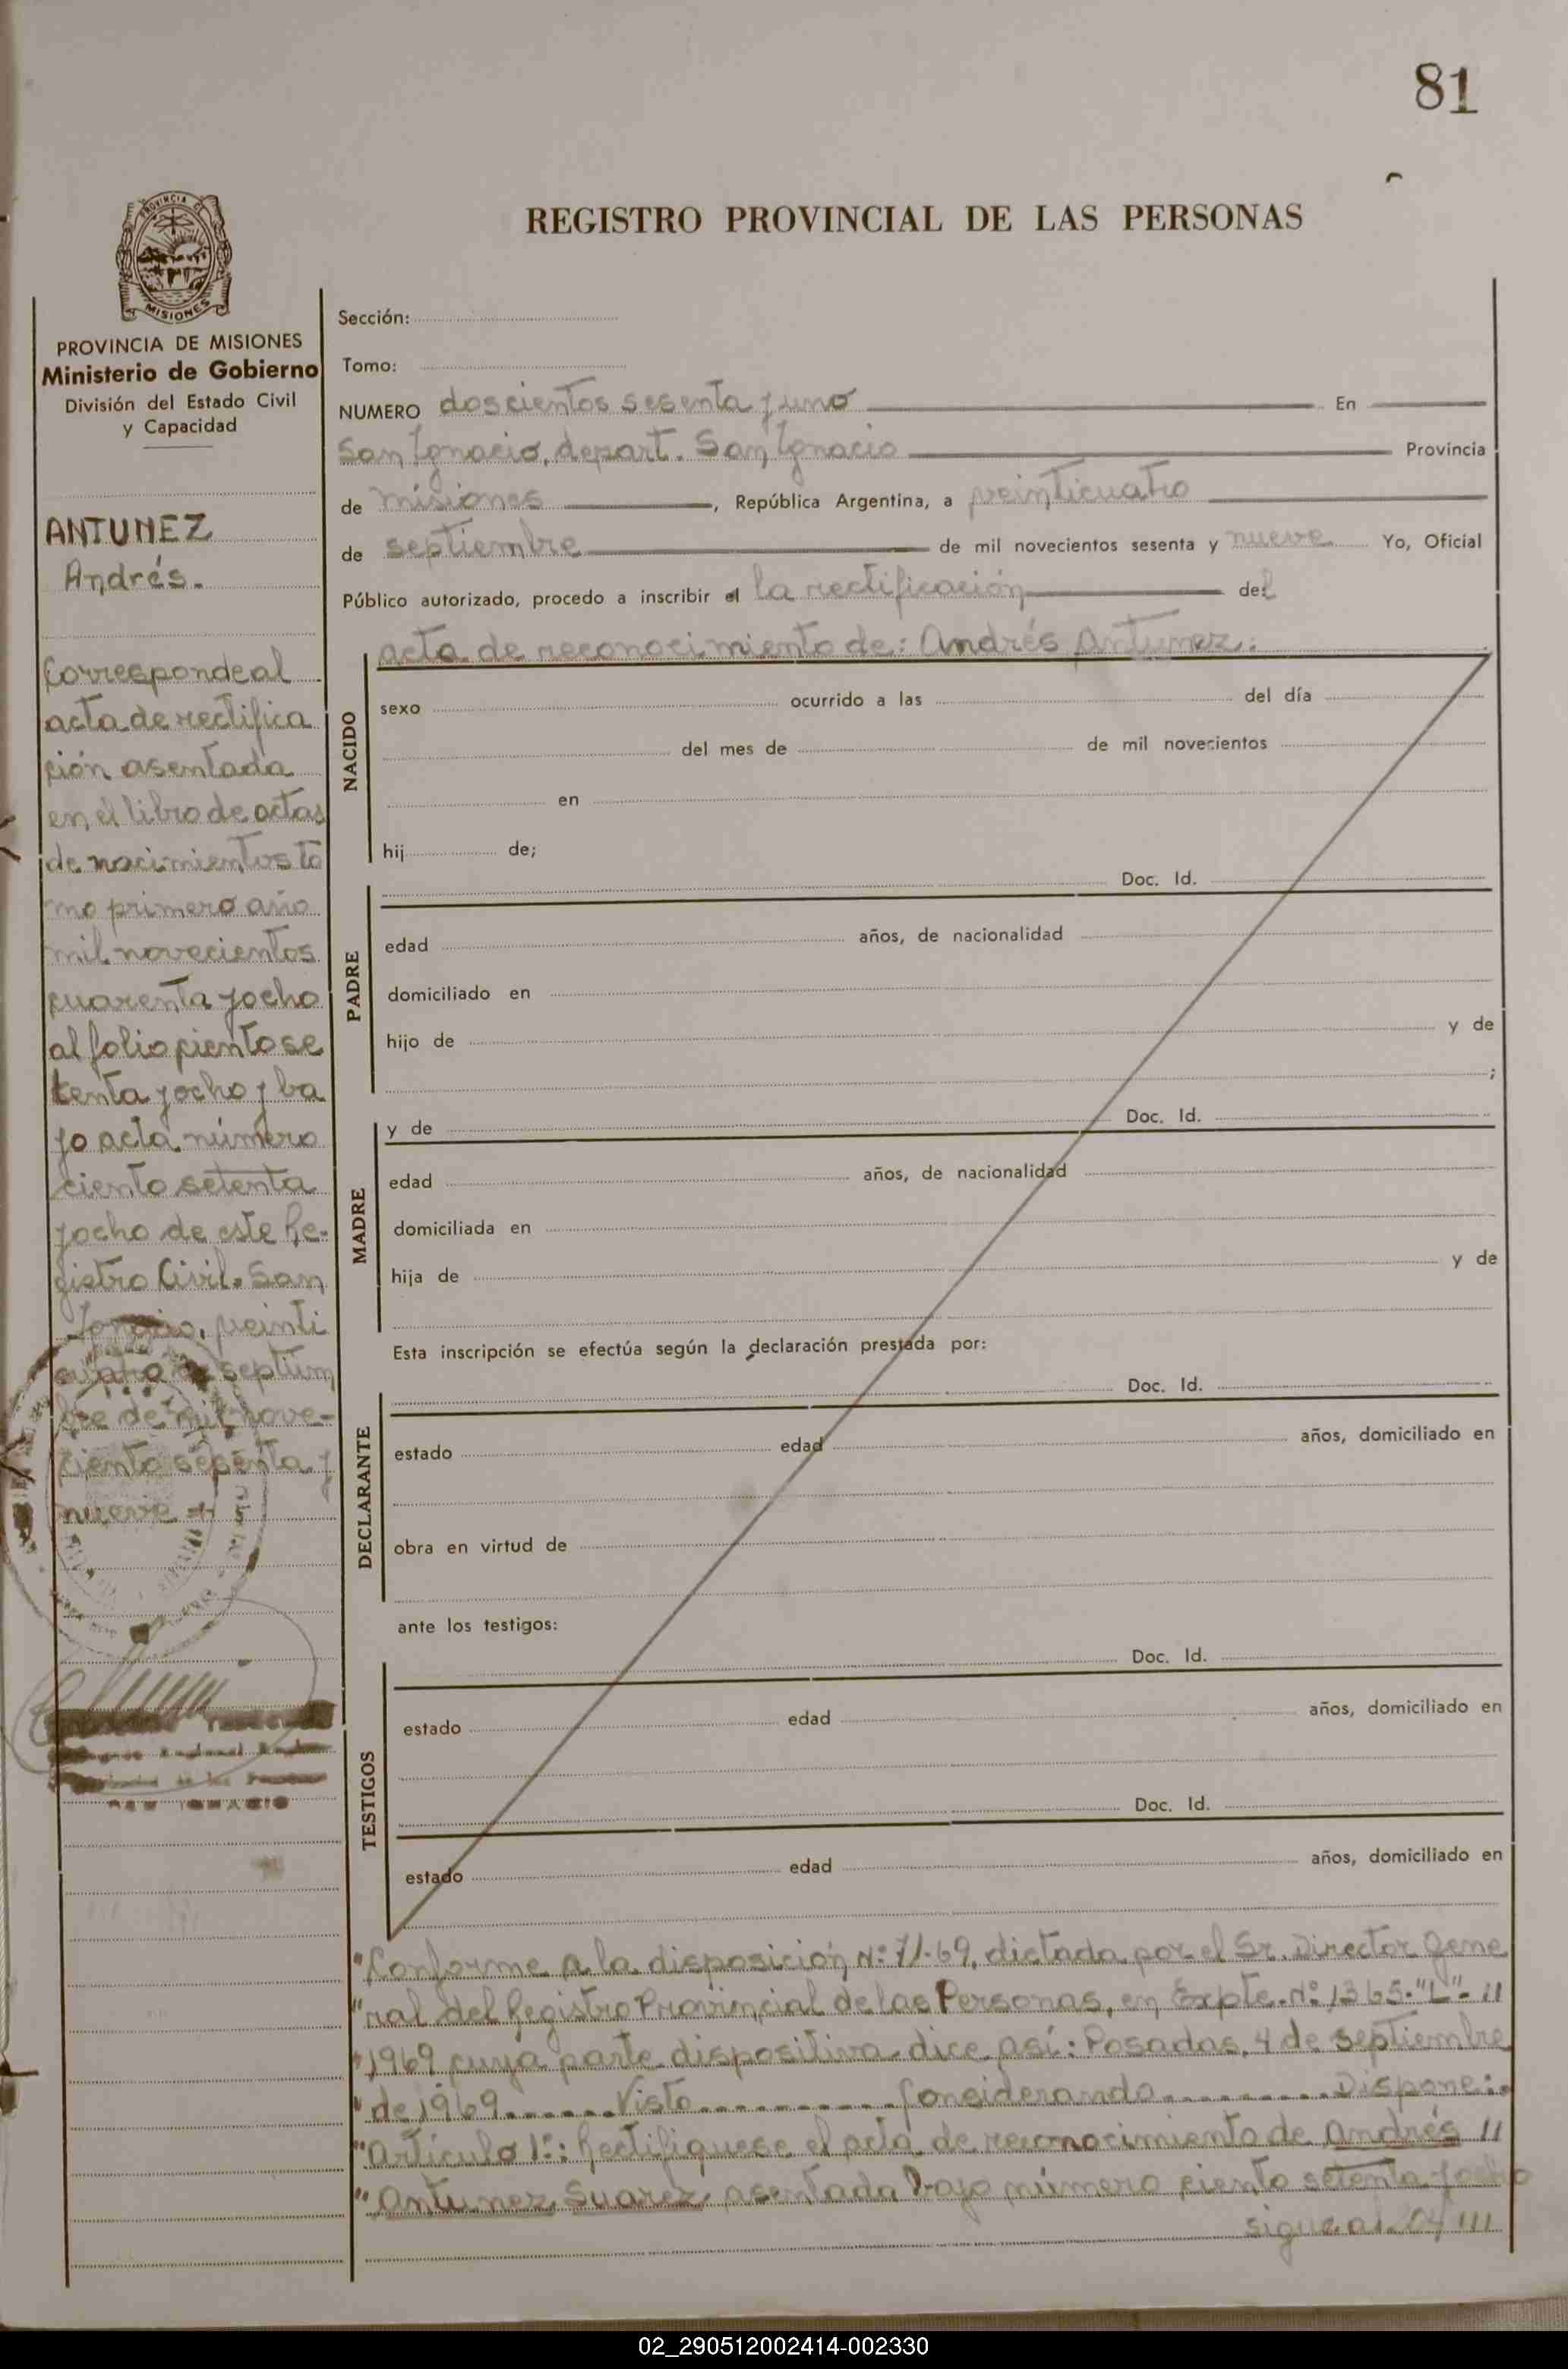 81
REGISTRO PROVINCIAL DE LAS PERSONAS
PROVINCIA DE
MISIONES
PROVINCIA DE MISIONES
Ministerio de Gobierno
División del Estado Civil
y Capacidad
ANTUNEZ
Andrés.
Corresponde al
acta de rectifica
ción asentada
en el libro de actas
de nacimientos to
mo primero año
mil novecientos
cuarenta y ocho
al folio ciento se
tenta y ocho y ba
jo acta número
ciento setenta
y ocho de este Re-
gistro Civil. San
Ignacio, veinti
cuatro de septiem
bre de mil nove-
ciento sesenta y
nueve
SAN IGNACIO
Sección:
Tomo:
NUMERO doscientos sesenta y uno En
San Ignacio, depart. San Ignacio Provincia
de misiones, República Argentina, a veinticuatro
de septiembre de mil novecientos sesenta y nueve Yo, Oficial
Público autorizado, procedo a inscribir el la rectificación del
acta de reconocimiento de: Andrés Antunez.
NACIDO
sexo ocurrido a las del día
del mes de de mil novecientos
en
hij de;
Doc. Id.
PADRE
edad años, de nacionalidad
domiciliado en
hijo de y de
;
y de Doc. Id.
MADRE
edad años, de nacionalidad
domiciliada en
hija de y de
Esta inscripción se efectúa según la declaración prestada por:
Doc. Id.
DECLARANTE
estado edad años, domiciliado en
obra en virtud de
ante los testigos:
Doc. Id.
TESTIGOS
estado edad años, domiciliado en
Doc. Id.
estado edad años, domiciliado en
"Conforme a la disposición Nº 71-69, dictada por el Sr. Director Gene
"ral del Registro Provincial de las Personas, en Expte. Nº 1365-"L"- //
"1969 cuya parte dispositiva dice así: Posadas, 4 de septiembre
"de 1969.......Visto...........Considerando..........Dispone:.
"Artículo 1º: Rectifiquese el acta de reconocimiento de Andrés //
"Antunez Suarez, asentada bajo número ciento setenta y ocho
sigue al 04 ///
02_290512002414-002330